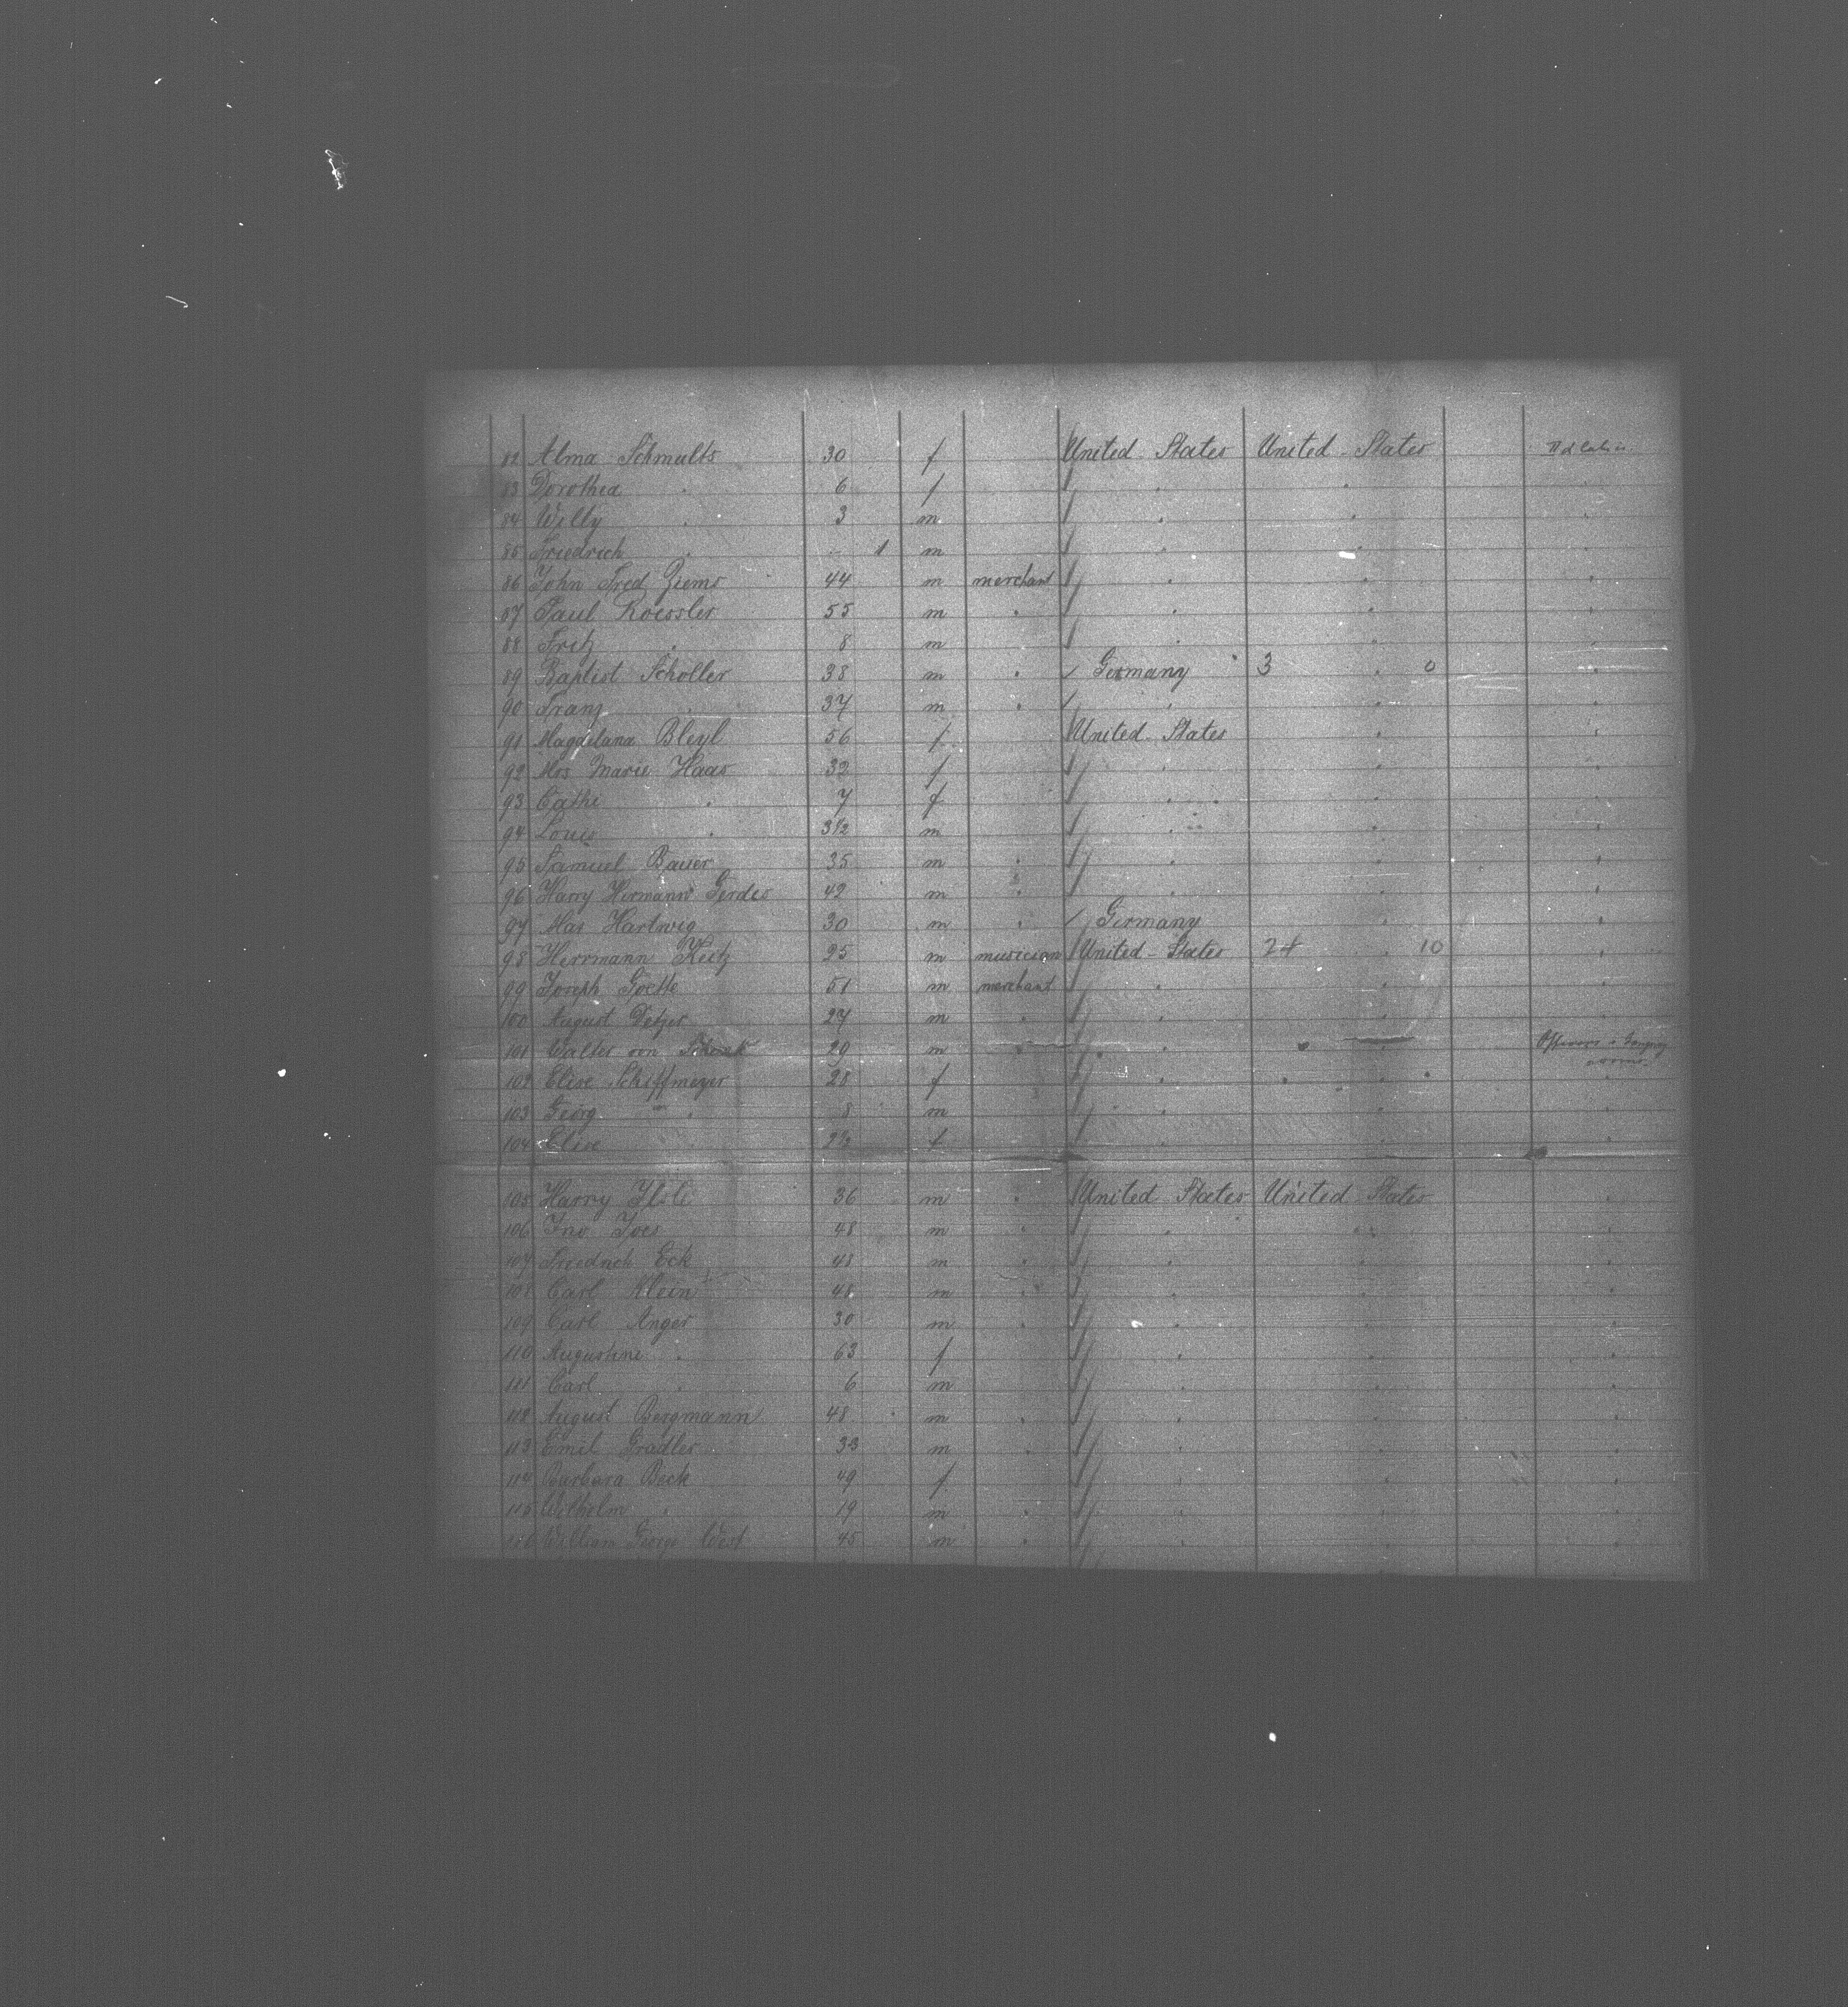 82 Alma Schmults 30 f United States United States II d Cabin
83 Dorothea " 6 f " " "
84 Willy " 3 m " " "
85 Friedrich " - 1 m " " "
86 John Fred Ziems 44 m merchant " " "
87 Paul Roessler 55 m " " " "
88 Fritz " 8 m " " "
89 Baptist Scholler 38 m " Germany 3 " 0 "
90 Franz " 37 m " " " "
91 Magdelana Bleyl 56 f United States " "
92 Mrs Marie Haas 32 f " " "
93 Cathi " 7 f " " "
94 Louis " 3½ m " " "
95 Samuel Bauer 35 m " " " "
96 Harry Hermann Gerdes 42 m " " " "
97 Max Hartwig 30 m " Germany " "
98 Herrmann Keitz 25 m musician United States 24 " 10 "
99 Joseph Goette 51 m merchant " " "
100 August Detzer 27 m " " " "
101 Walter von 29 m " " " Officers
102 Elise Schiffmeyer 28 f " " "
103 Georg " 8 m " " "
104 Elise " 2½ f " " "
105 Harry 36 m " United States United States "
106 Jno Joes 48 m " " " "
107 Friedrich Eck 48 m " " " "
108 Carl Klein 48 m " " " "
109 Carl Anger 30 m " " " "
110 Augustine " 63 f " " "
111 Carl " 6 m " " "
112 August Bergmann 48 m " " " "
113 Emil Gradler 33 m " " " "
114 Barbara Beck 49 f " " "
115 Wilhelm " 19 m " " " "
116 William George West 45 m " " " "